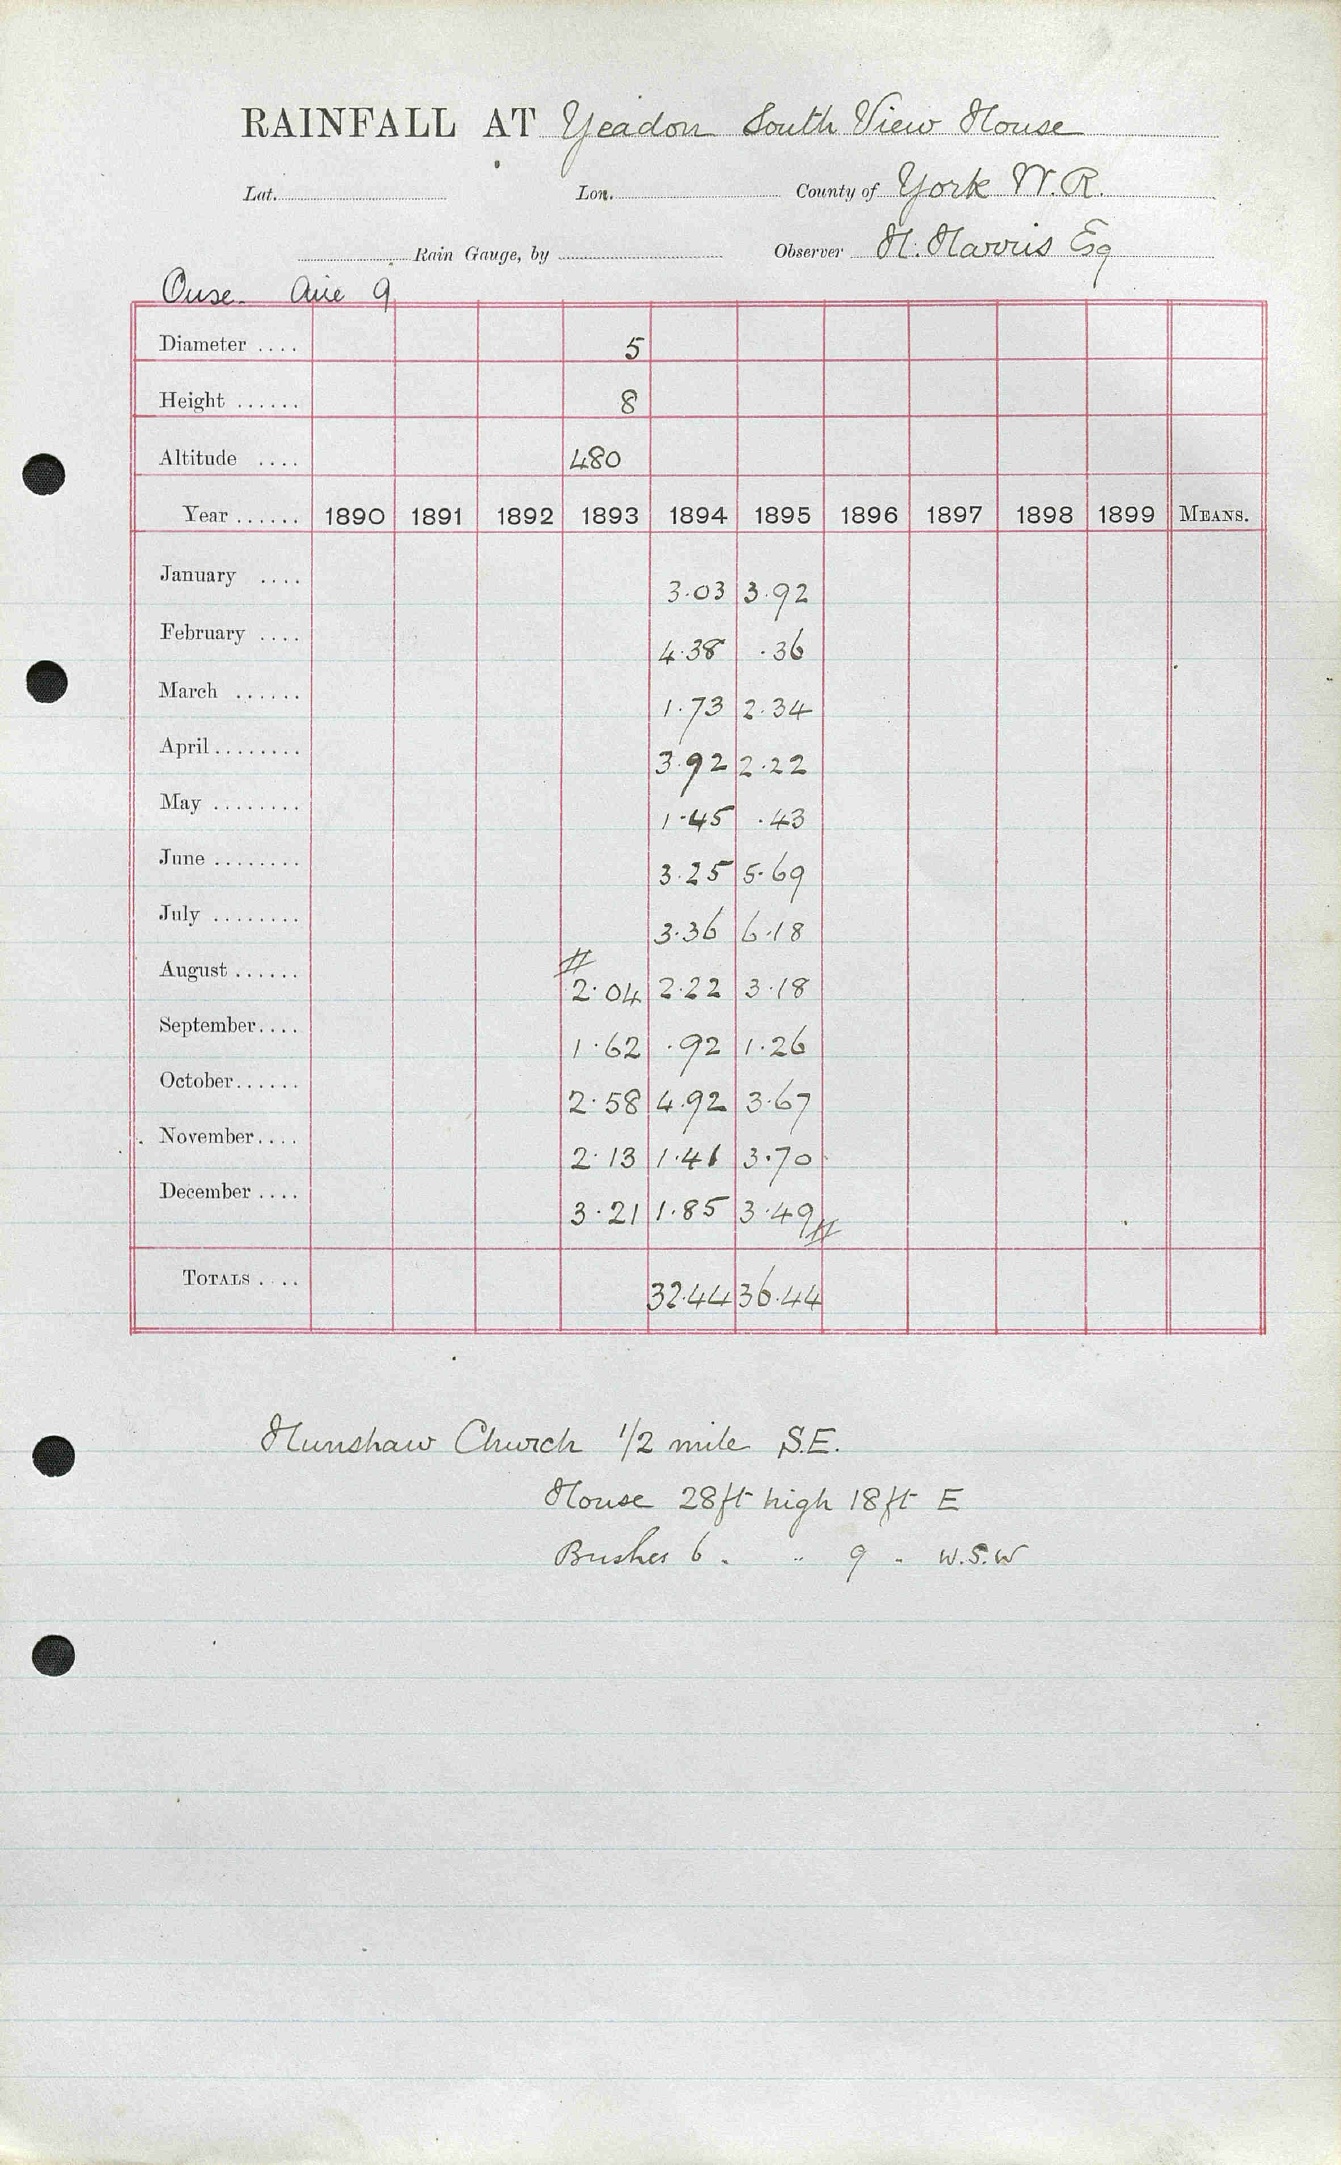 RAINFALL AT Yeadon South View House
Lat. Lon. County of York W.R.
Rain Gauge, by Observer H. Harris Esq
Ouse. Aire 9
Diameter .... 5
Height ...... 8
Altitude .... 480
Year ...... 1890 1891 1892 1893 1894 1895 1896 1897 1898 1899 MEANS.
January .... 3.03 3.92
February .... 4.38 .36
March ...... 1.73 2.34
April ........ 3.92 2.22
May ........ 1.45 .43
June ........ 3.25 5.69
July ........ 3.36 6.18
August ...... 2.04 2.22 3.18
September.... 1.62 .92 1.26
October...... 2.58 4.92 3.67
November.... 2.13 1.41 3.70
December .... 3.21 1.85 3.49
TOTALS .... 32.44 36.44
Hunshaw Church 1/2 mile S.E.
House 28ft high 18ft E
Bushes 6 . " 9 . W.S.W